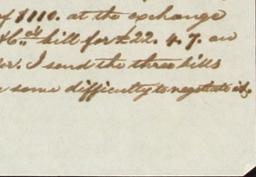 of $110. at the exchange
bill for £22. 4. 7. on
or. I send the three bills
some difficulty to negotiate it.